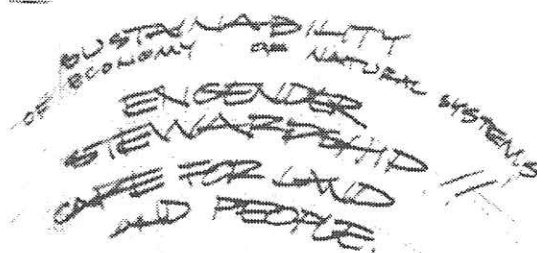 SUSTAINABILITY
OF ECONOMY OR NATURAL SYSTEMS
ENGENDER
STEWARDSHIP
CARE FOR LAND
AND PEOPLE.